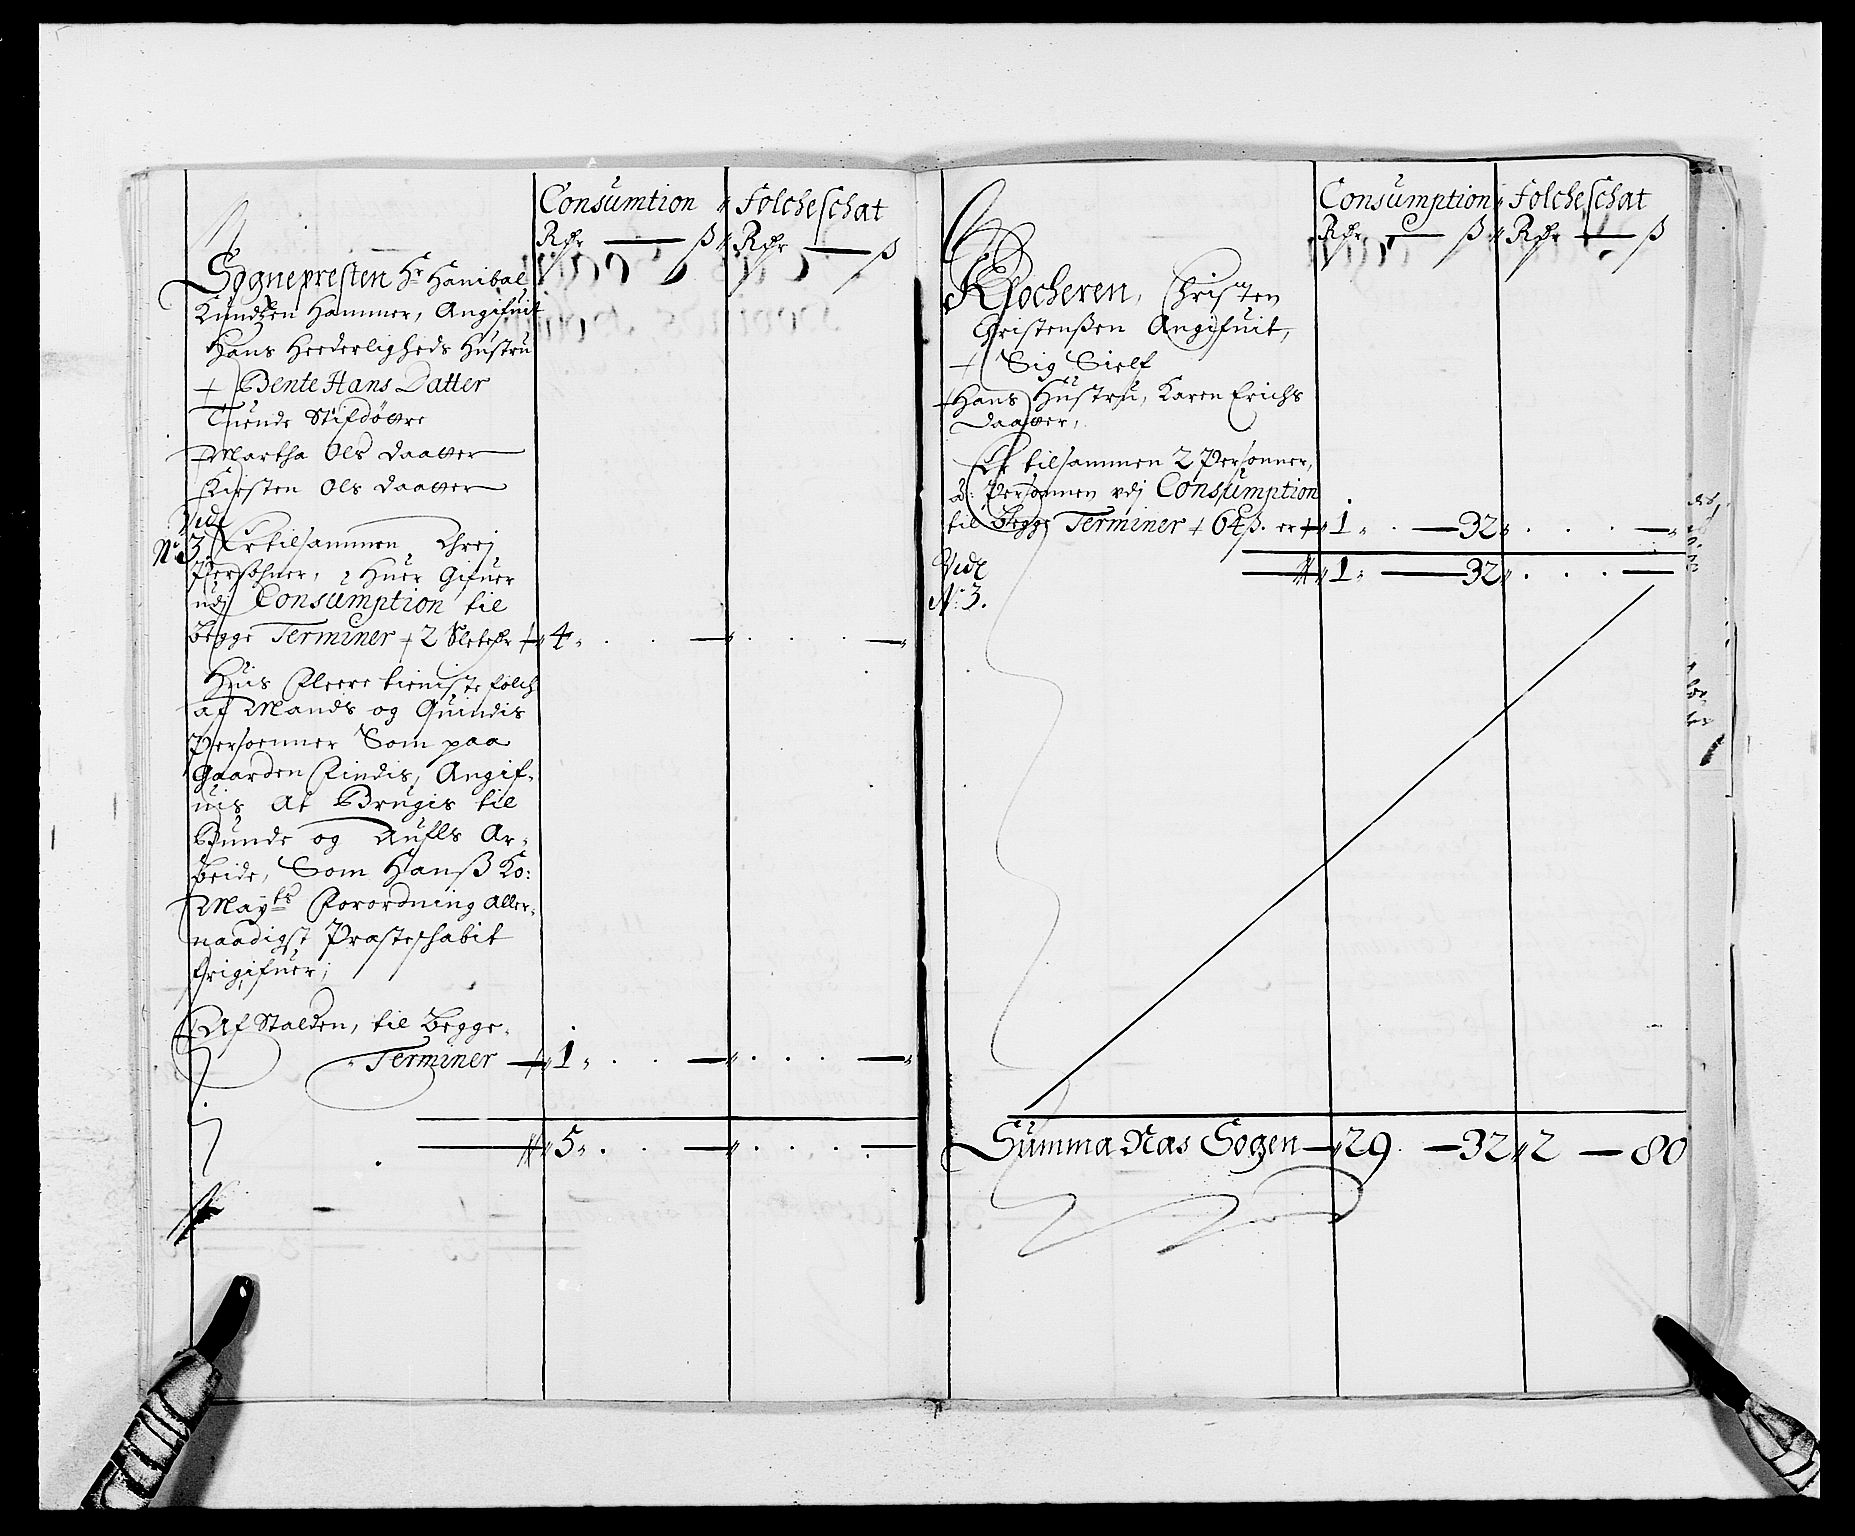 Consumtion Folcheschat
Rdr ß Rdr ß
Sognepresten Hr Hanibal
Knudzen Hammer, Angifuit
Hans Heederligheds Hustru
+ Bente Hans Datter
Tuende Stifdøttre
Martha Ols daatter
Kirsten Ols daatter
Vide
No 3 Er tilsammen Threj
Persohner, Huer Gifuer
udj Consumption til
Begge Terminer + 2 Sletdr 4
Huis fleere tieniste folch
af Mands og Quindis
Persoenner Som paa
Gaarden findis, Angif-
uis At Brugis til
Bunde og Aufls Ar-
beide, Som Hanß Ko:
Mayts Forordning Aller-
naadigst Præsteschabit
frigifuer;
Af Stalden, til Begge
Terminer 1
5
Consumption Folcheschat
Rdr ß Rdr ß
Klocheren, Christen
Christenßen Angifuit,
+ Sig Sielf
+ Hans Hustru, Karen Erichs
Daatter,
Er tilsammen 2 Personner,
Personen vdj Consumption
til Begge Terminer + 64 ß. er 1 32
Vide 1 32
No 3.
Summa Nas Sogen 29 32 2 80